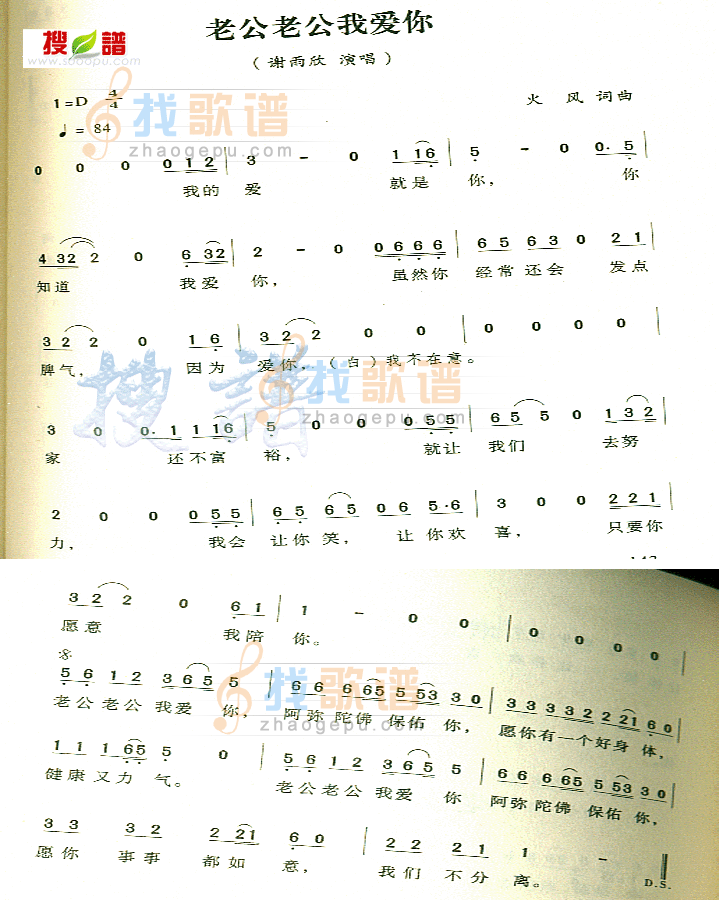 搜谱
www.sooopu.com
老公老公我爱你
（谢雨欣 演唱）
1=D 4/4
火 风 词曲
♩= 84
找歌谱
zhaogepu.com
0 0 0 0 1 2 | 3 – 0 1 1 6 | 5 – 0 0· 5 |
我的 爱 就是 你， 你
4 3 2 2 0 6 3 2 | 2 – 0 0 6 6 6 | 6 5 6 3 0 2 1 |
知道 我爱 你， 虽然你 经常还会 发点
3 2 2 0 1 6 | 3 2 2 0 0 | 0 0 0 0 |
脾气， 因为 爱你，（白）我不在意。
搜谱
找歌谱
zhaogepu.com
3 0 0· 1 1 1 6 | 5 0 0 0 5 5 | 6 5 5 0 1 3 2 |
家 还不富 裕， 就让 我们 去努
2 0 0 0 5 5 | 6 5 6 5 0 6 5·6 | 3 0 0 2 2 1 |
力， 我会 让你 笑， 让 你欢 喜， 只要你
3 2 2 0 6 1 | 1 – 0 0 | 0 0 0 0 |
愿意 我陪 你。
找歌谱
zhaogepu.com
5 6 1 2 3 6 5 5 | 6 6 6 6 5 5 5 3 3 0 | 3 3 3 3 2 2 2 1 6 0 |
老公老公 我爱 你， 阿弥 陀佛 保佑 你， 愿你有一个好身 体，
1 1 1 6 5 5 0 | 5 6 1 2 3 6 5 5 | 6 6 6 6 5 5 5 3 3 0 |
健康 又力 气。 老公老公 我爱 你 阿弥陀佛 保佑 你，
3 3 3 2 2 2 1 6 0 | 2 2 2 1 1 – ‖
愿你 事事 都如 意， 我们 不分 离。 D.S.